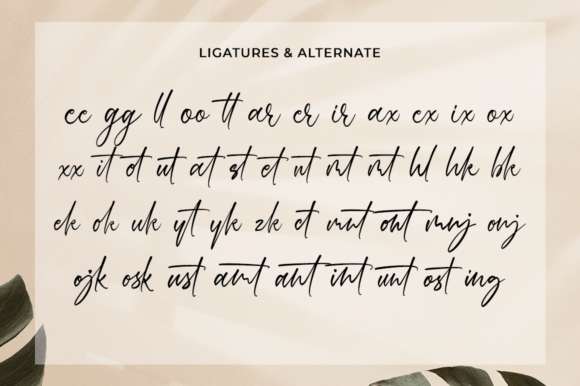 LIGATURES & ALTERNATE
ee gg ll oo tt ar er ir ax ex ix ox
xx it ot ut at st et nt hl hk bk
ek ok uk yt yk zk ct
ojk osk ust amt ant int unt ost ing